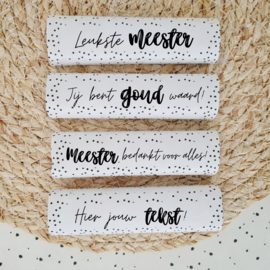 Leukste meester
Jij bent goud waard!
Meester bedankt voor alles!
Hier jouw tekst!